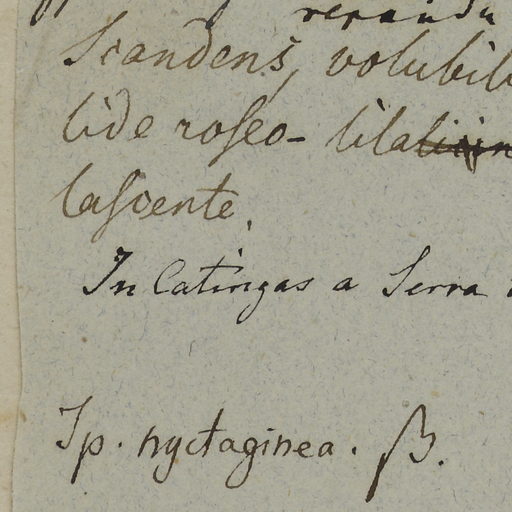 repandu
Scandens, volubil
lide roseo- lila
lascente.
In Catingas a Serra
Ip. nyctaginea. β.